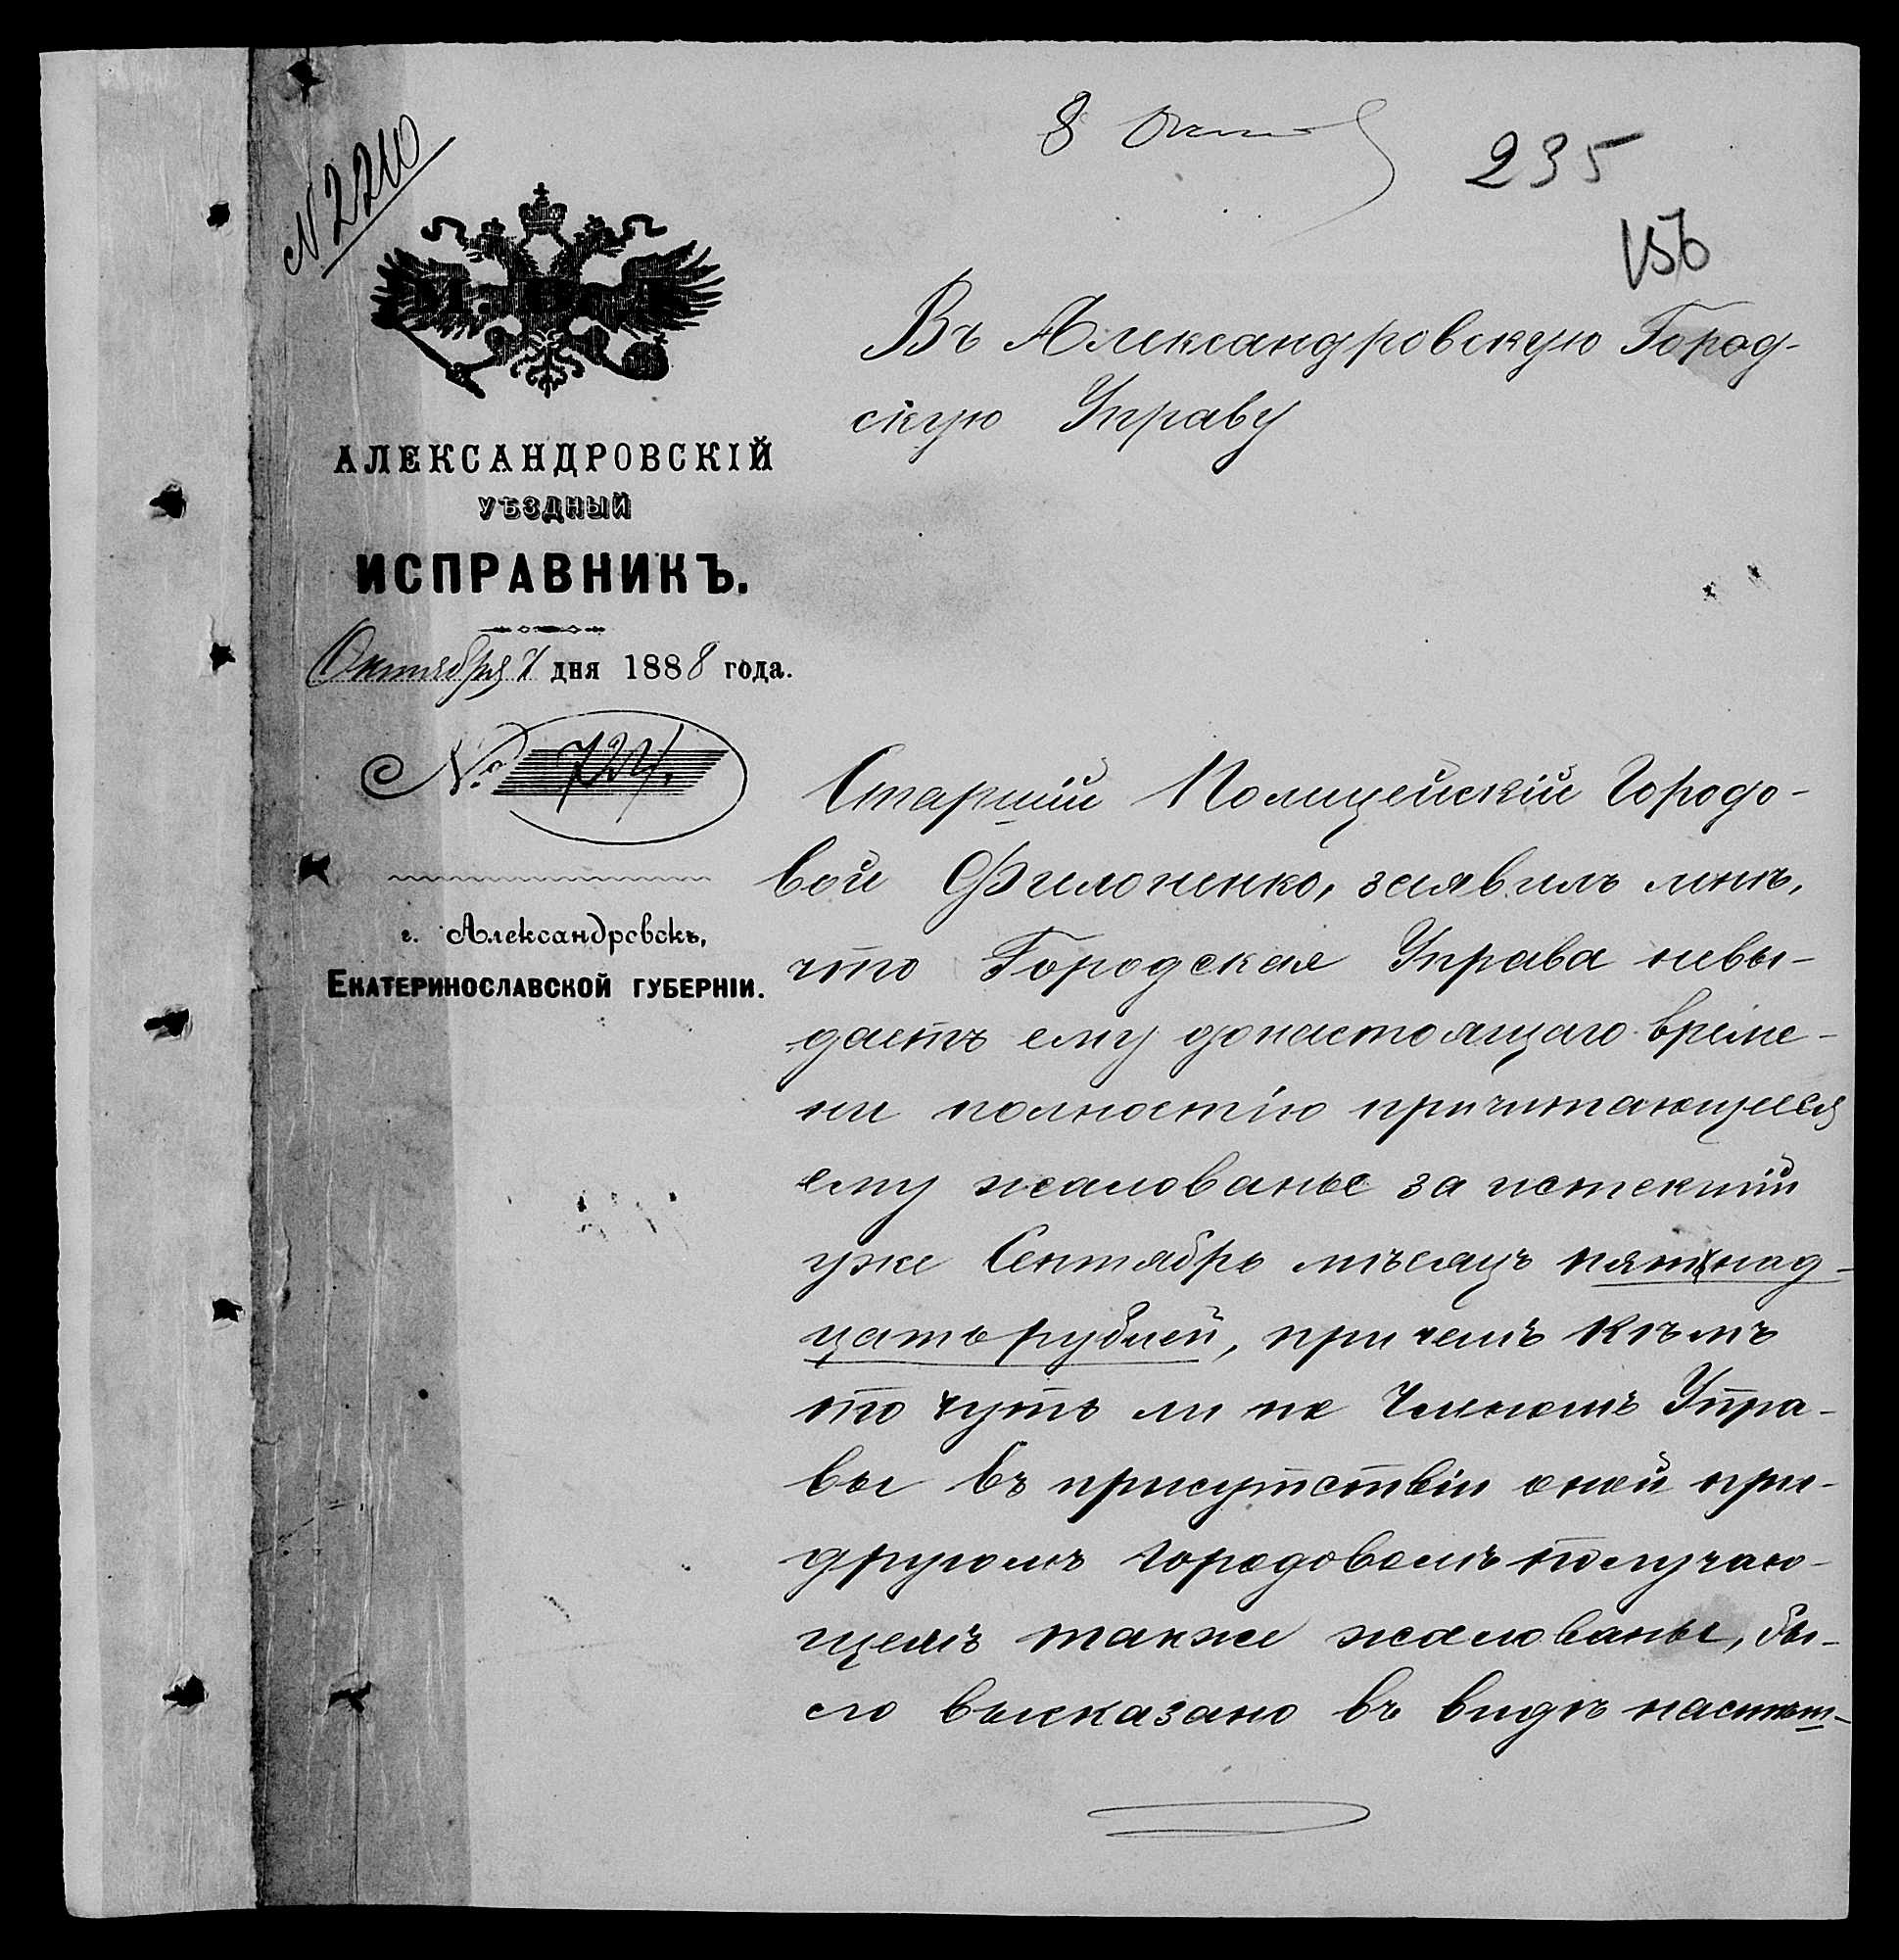 8 Окт
235
156
№ 2210
Въ Александровскую Город-
скую Управу
АЛЕКСАНДРОВСКІЙ
УѢЗДНЫЙ
ИСПРАВНИКЪ.
Октября 7 дня 1888 года.
№ 724.
г. Александровскъ,
ЕКАТЕРИНОСЛАВСКОЙ ГУБЕРНІИ.
Старшій Полицейскій Городо-
вой Филоненко, заявилъ мнѣ,
что Городская Управа невы-
даетъ ему донастоящаго време-
ни полностію причитающееся
ему жалованье за истекшій
уже Сентябрь мѣсяцъ пятнад-
цать рублей, при чемъ кѣмъ
то чуть ли не Членомъ Упра-
вы въ присутствіи оной при-
другомъ городовомъ получаю-
щемъ также жалованье, бы-
ло высказано въ видѣ насмѣш-